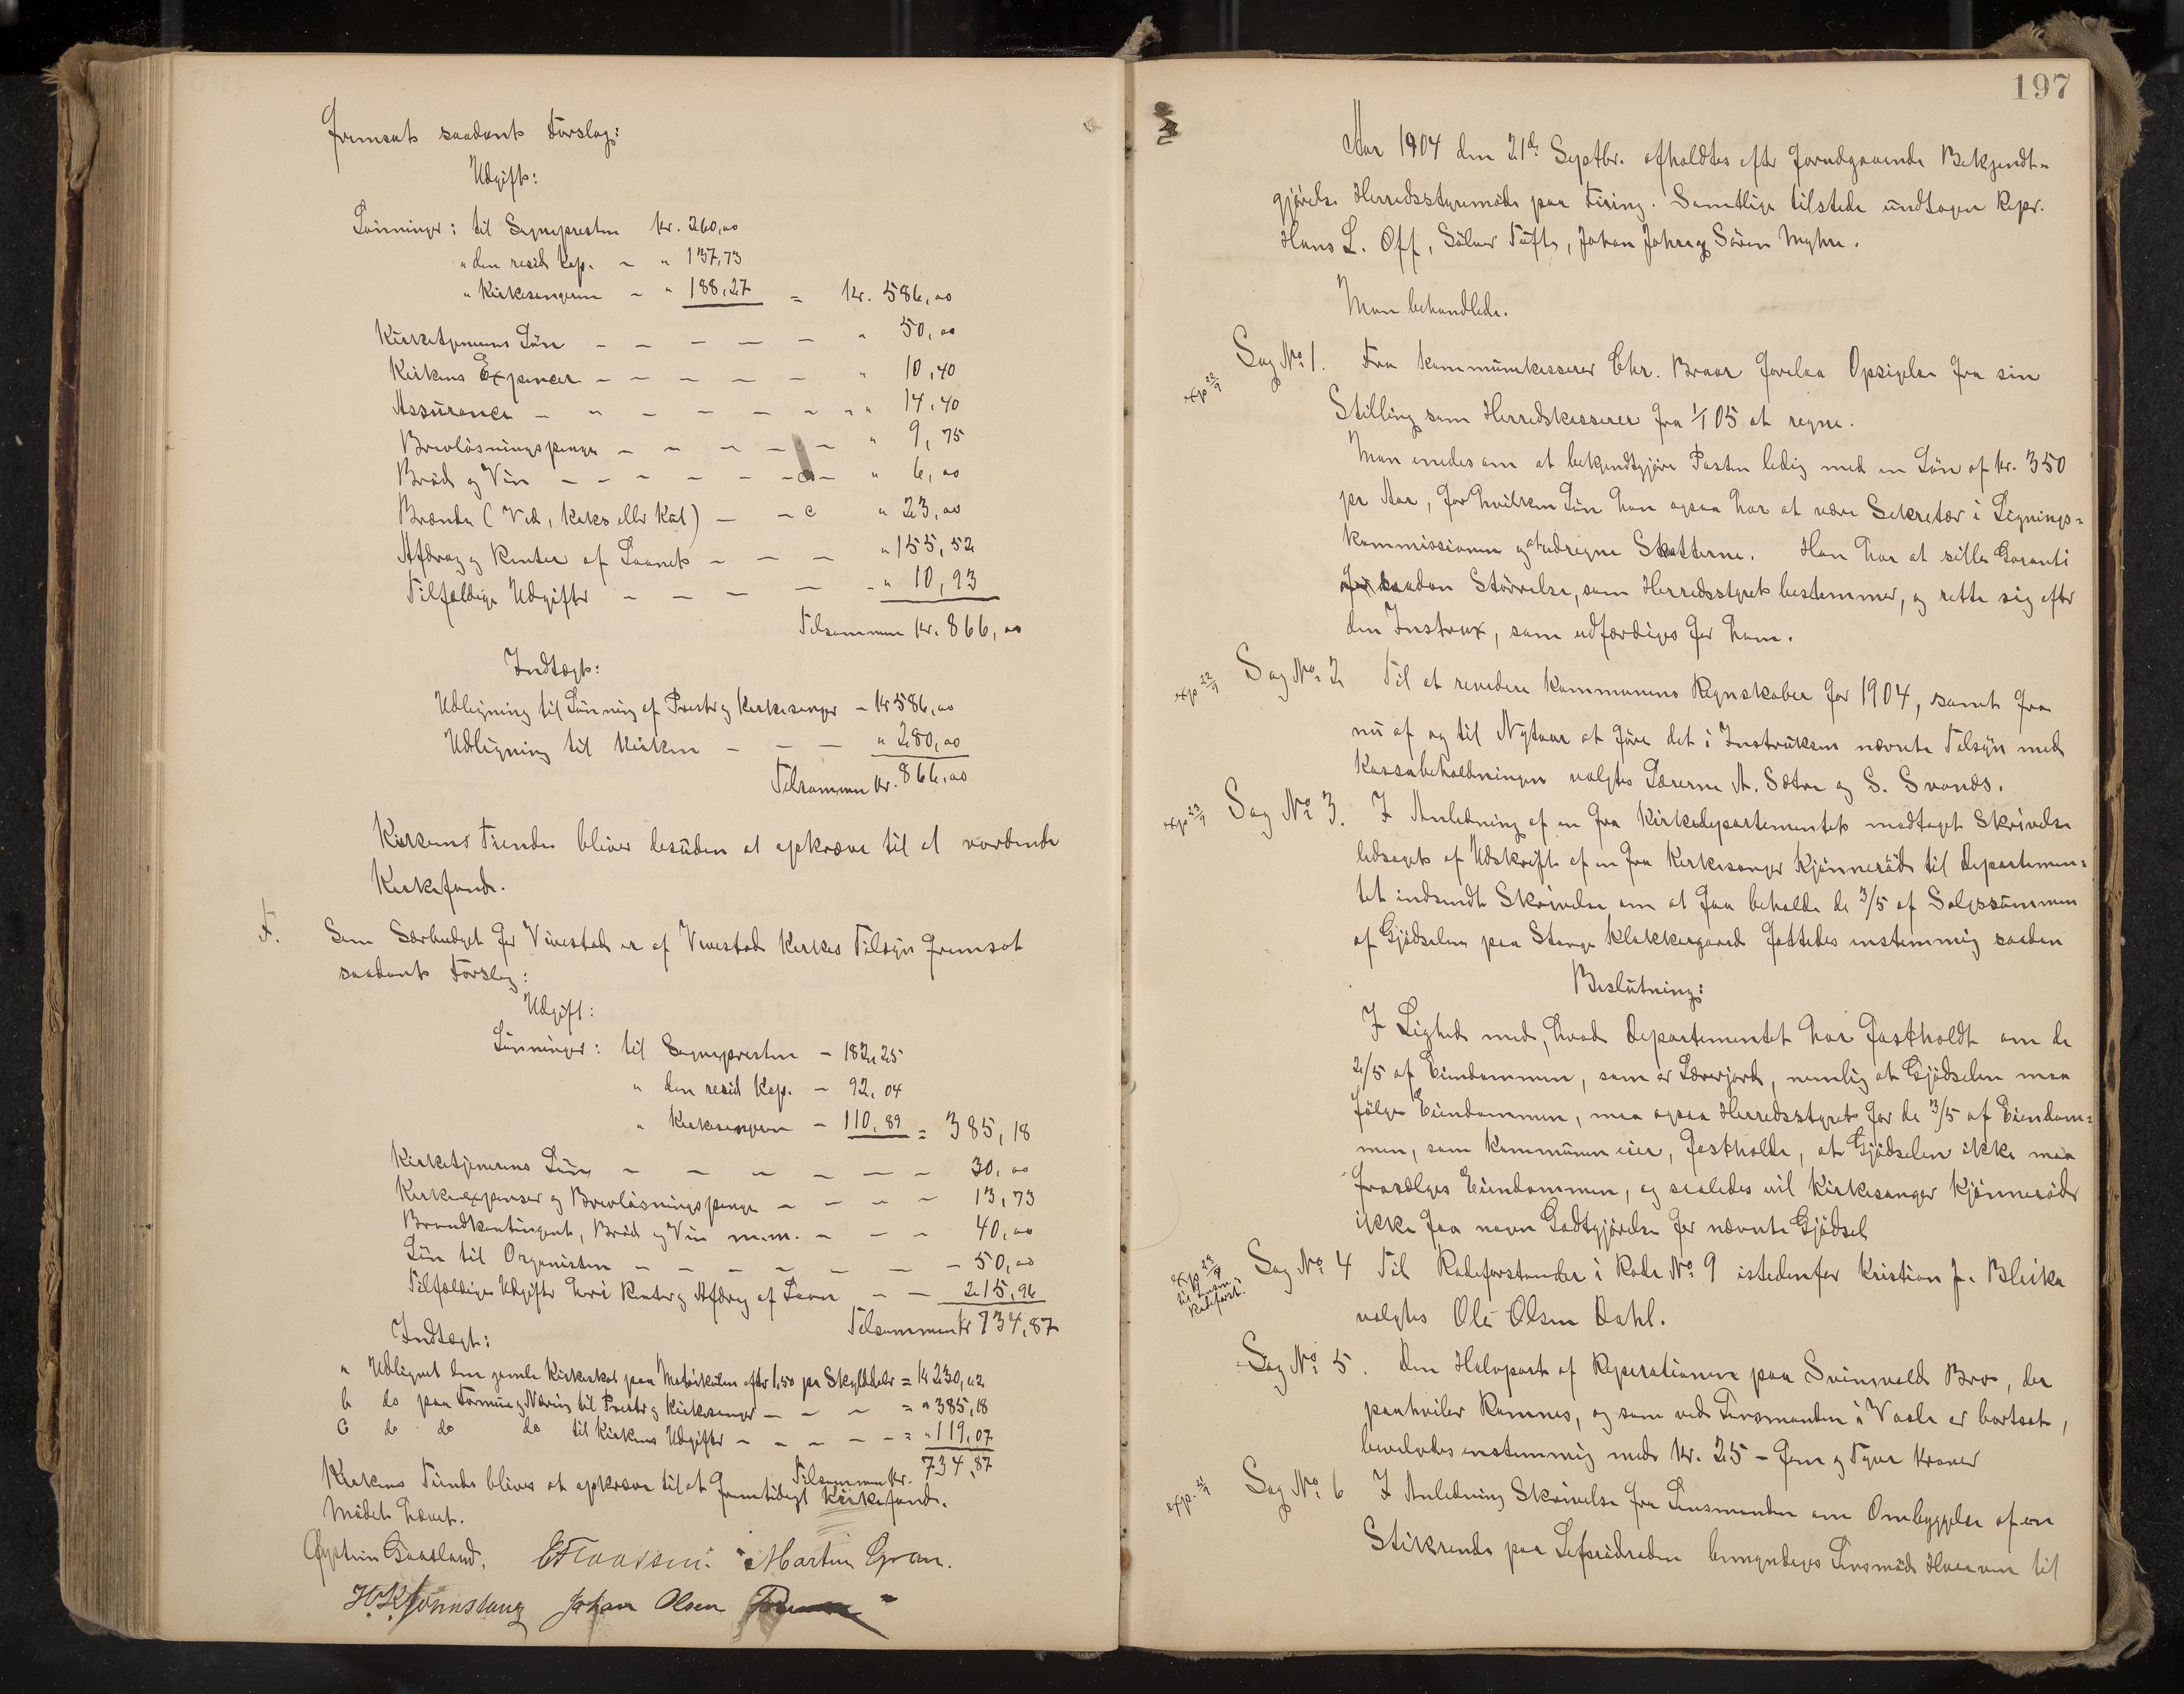 fremsat saadant Forslag:
Udgift:
Lønninger: til Sognepresten Kr. 260,00
" den resid Kap. – " 137,73
" Kirkesangeren – " 188,27 = Kr. 586,00
Kirketjenerens Løn – – – – – " 50,00
Kirkens Expencer – – – – – " 10,40
Assurance – " – – – – " " 14,40
Brevløsningspenge – – – – – " 9,75
Brød og Vin – – – – – – – " 6,00
Brænde (Ved, Koks eller Kul) – – c " 23,00
Afdrag og Renter af Laanet – – – " 155,52
Tilfældige Udgifter – – – – – " 10,93
Tilsammen Kr. 866,00
Indtægt:
Udligning til Lønning af Prest og Kirkesanger – Kr 586,00
Udligning til Kirken – – – " 280,00
Tilsammen Kr. 866,00
Kirkens Tiender bliver desuden at opkræve til et vordende
Kirkefond.
F. Som Særbudget for Vivestad er af Vivestad Kirkes Tilsyn fremsat
saadant Forslag:
Udgift:
Lønninger: til Sognepresten – 182,25
" den resid Kap. – 92,04
" Kirkesangeren – 110,89 = 385,18
Kirketjenerens Løn – – – – – – 30,00
Kirkeexpenser og Brevløsningspenge – – – – 13,73
Brandkontingent, Brød og Vin m.m. – – – 40,00
Løn til Organisten – – – – – – – 50,00
Tilfældige Udgifter heri Renter og Afdrag af Laan – – 215,96
Tilsammen Kr 734,87
Indtægt:
a Udlignet den gamle Kirkeskat paa Matrikulen efter 1,50 pr Skylddaler = Kr 230,62
b do paa Formue og Næring til Prest og Kirkesanger – – – = " 385,18
c do do do til Kirkens Udgifter – – – – – = " 119,07
Tilsammen Kr. 734,87
Kirkens Tiende bliver at opkræve til et fremtidigt Kirkefond.
Mødet hævet.
Øystein Gaasland. E Klaassen. Martin Gran.
H. K. Johan Olsen
197
Aar 1904 den 21de Septbr. afholdtes efter forudgaaende Bekjendt=
gjørelse Herredsstyremøde paa Firing. Samtlige tilstede undtagen Repr.
Hans L. Off, Sølver Tufte, Johan Johns og Søren Myhre.
Man behandlede.
exp 22/9 Sag No. 1. Fra Kommunekasserer Chr. Braar forelaa Opsigelse fra sin
Stilling som Herredskasserer fra 1/1 05 at regne.
Man enedes om at bekjendtgjøre Posten ledig med en Løn af Kr. 350
pr Aar, for hvilken Løn han ogsaa har at være Sekretær i Lignings=
kommissionen og at udregne Skatterne. Han har at stille Garanti
af saadan Størrelse, som Herredsstyret bestemmer, og rette sig efter
den Instrux, som udfærdiges for ham.
exp 22/9 Sag No. 2 Til at revidere Kommunens Regnskaber for 1904, samt fra
nu af og til Nytaar at føre det i Instruksen nævnte Tilsyn med
Kassabeholdningen valgtes Lærerne A. Sætre og S. Svands.
exp 23/9 Sag No. 3. I Anledning af en fra Kirkedepartementet modtaget Skrivelse
ledsaget af Udskrift af en fra Kirkesanger Kjønnerød til Departemen=
tet indsendt Skrivelse om at faa beholde de 3/5 af Salgssummen
af Gjødselen paa Stange Klokkergaard fattedes enstemmig saadan
Beslutning:
I Lighed med, hvad Departementet har fastholdt om de
2/5 af Eiendommen, som er Lærerjord, nemlig at Gjødselen maa
følge Eiendommen, maa ogsaa Herredsstyret for de 3/5 af Eiendom=
men, som Kommunen eier, fastholde, at Gjødselen ikke maa
frasælges Eiendommen, og saaledes vil Kirkesanger Kjønnerød
ikke faa nogen Godtgjørelse for nævnte Gjødsel
exp 23/9 til Rodeforst. Sag No. 4 Til Rodeforstander i Rode No. 9 istedenfor Kristian J. Bleika
valgtes Ole Olsen Dahl.
Sag No. 5. Den Halvpart af Reperationen paa Svinevolds Bro, der
paahviler Ramnes, og som ved Lensmanden i Vaale er bortsat,
bevilgedes enstemmig med Kr. 25 – fem og Tyve Kroner
exp. Sag No. 6 I Anledning Skrivelse fra Lensmanden om Ombyggelse af en
Stikrende paa Lefsrødroden bemyndiges Lensmand til